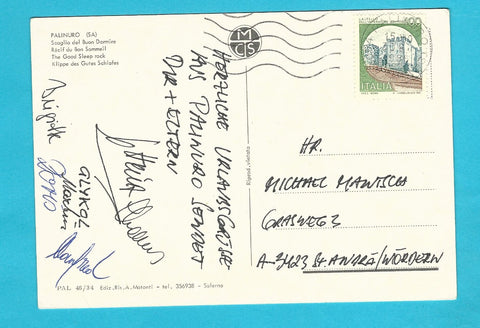 PALINURO (SA)
Scoglio del Buon Dormire
Récif du Bon Sommeil
The Good Sleep rock
Klippe des Gutes Schlafes
MCS
400
ITALIA
HERZLICHE URLAUBSGRÜSSE
AUS PALINURO SENDET
DIR + ELTERN
Brigitte
GLYKOL
Manfred
HR.
MICHAEL MANTSCH
GRASWEG 3
A-3423 ST. ANDRÄ/WÖRDERN
PAL 48/34 Ediz. Ris. A. Matonti - tel. 356938 - Salerno